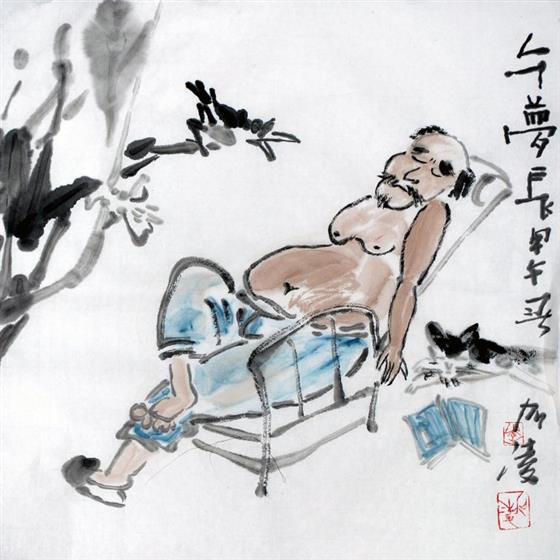 午夢長甲午
加凌